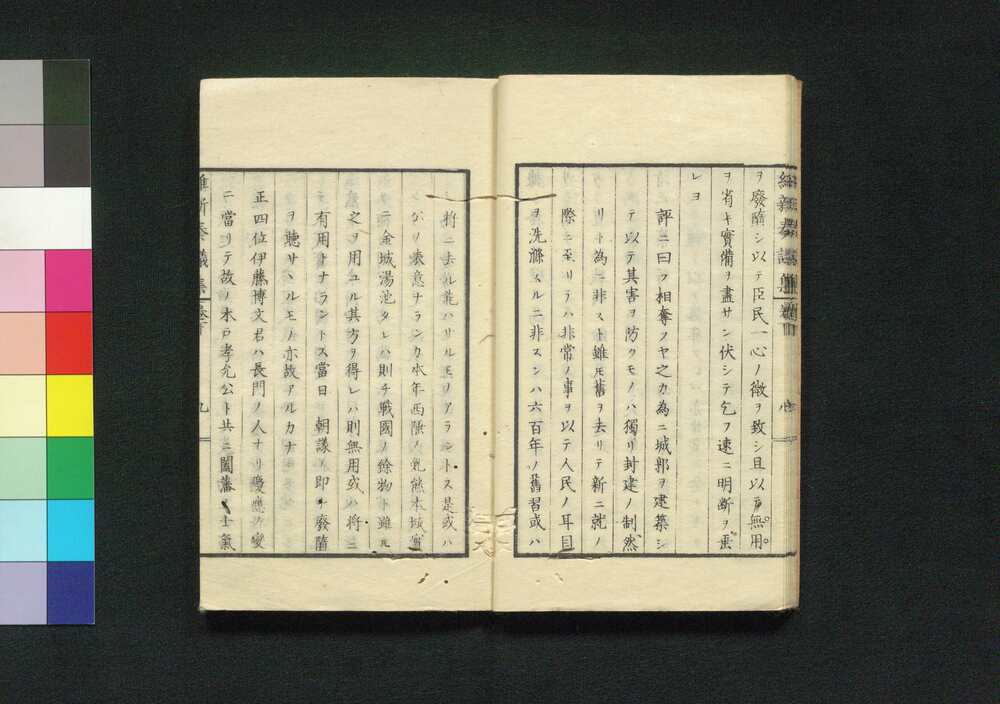 ヲ廢隳シ以テ臣民一心ノ徴ヲ致シ且以テ無用
ヲ省キ實備ヲ盡サン伏シテ乞フ速ニ明斷ヲ垂
レヨ
評ニ曰フ相奪フヤ之カ為ニ城郭ヲ建築シ
テ以テ其害ヲ防クモノハ獨リ封建ノ制然
リト為ニ非スト雖𪜈舊ヲ去リテ新ニ就ノ
際ニ至リテハ非常ノ事ヲ以テ人民ノ耳目
ヲ洗滌スルニ非スンハ六百年ノ舊習或ハ
將ニ去ル能ハサルモノアラントス是或ハ
公ノ素意ナランカ本年西陲ノ乱熊本城實
ニ金城湯池タレハ則チ戰國ノ餘物ト雖𪜈
之ヲ用ユル其方ヲ得レハ則無用或ハ將ニ
有用トナラントス當日 朝議ノ即チ廢隳
ヲ聽サヽルモノ亦故アルカナ
正四位伊藤博文君ハ長門ノ人ナリ慶應ノ變
ニ當リテ故ノ木戸孝允公ト共ニ闔藩ノ士氣
維新奏議集
九